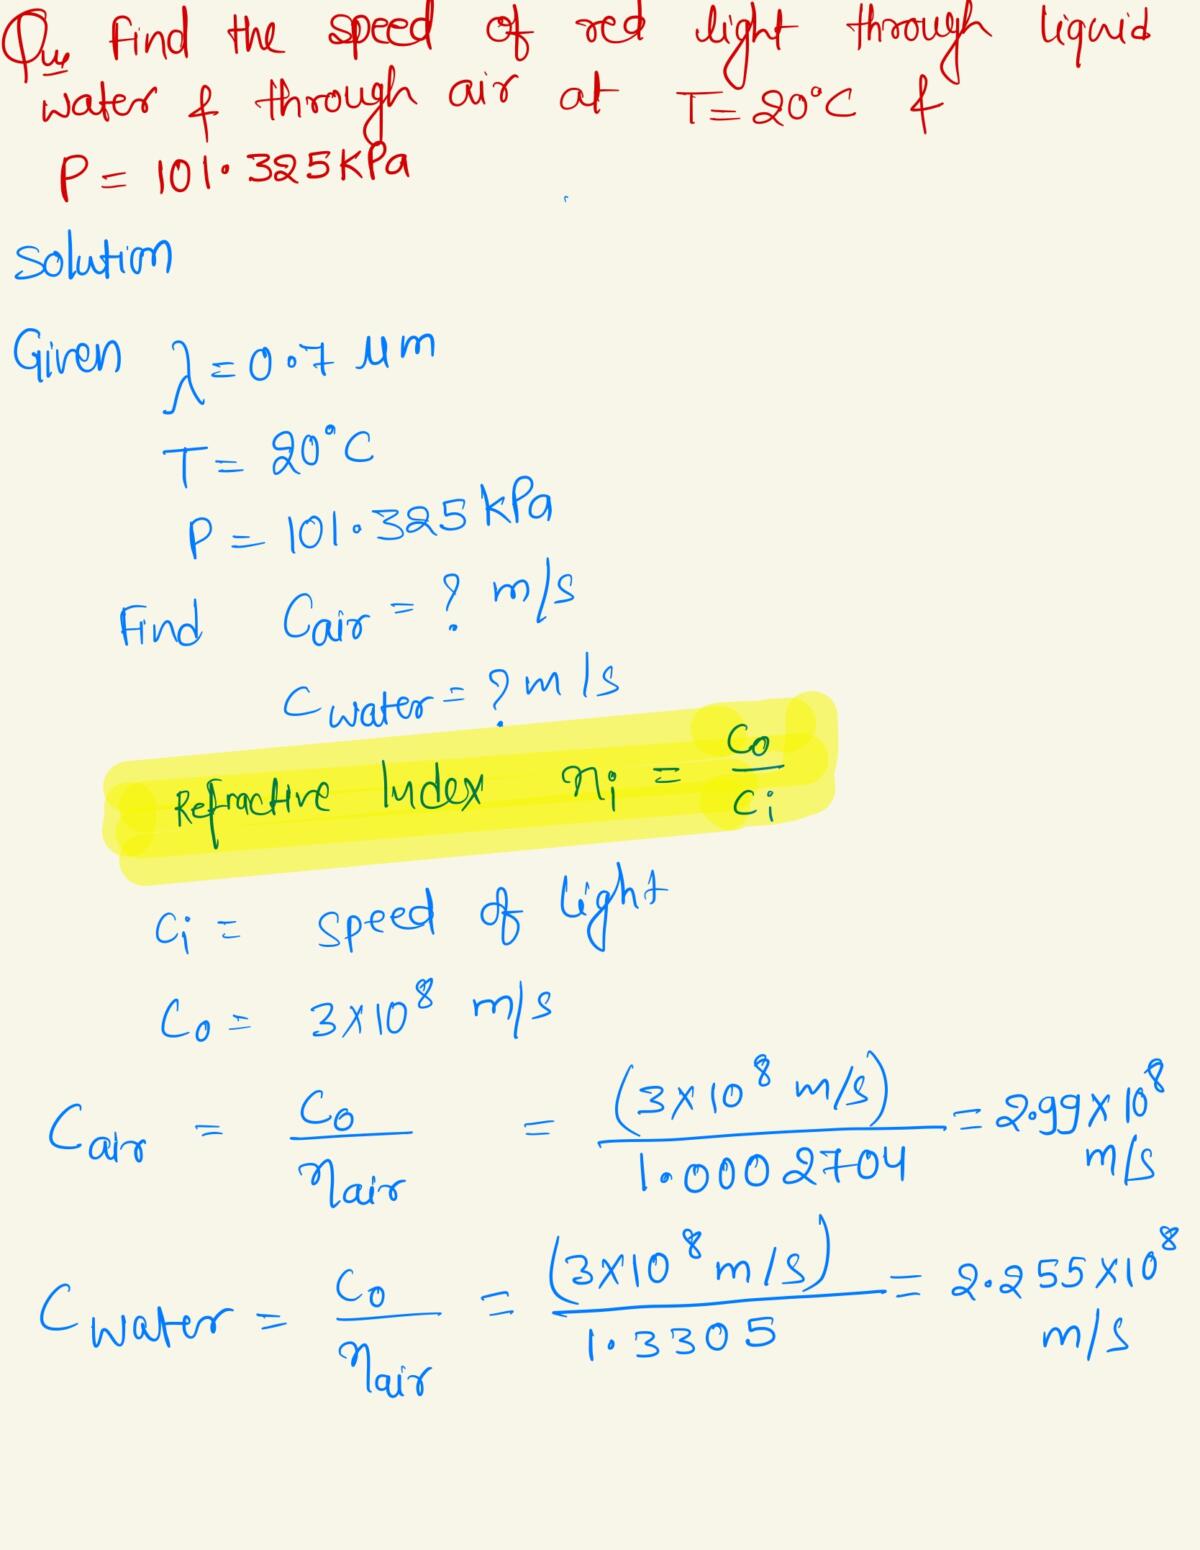 Que Find the speed of red light through liquid
water & through air at T = 20°C &
P = 101.325 KPa
Solution
Given λ = 0.7 μm
T = 20°C
P = 101.325 kPa
Find Cair = ? m/s
Cwater = ? m/s
Refractive Index ni = Co/Ci
Ci = speed of light
Co = 3×10⁸ m/s
Cair = Co/ηair = (3×10⁸ m/s)/1.0002704 = 2.99×10⁸ m/s
Cwater = Co/ηair = (3×10⁸ m/s)/1.3305 = 2.255×10⁸ m/s